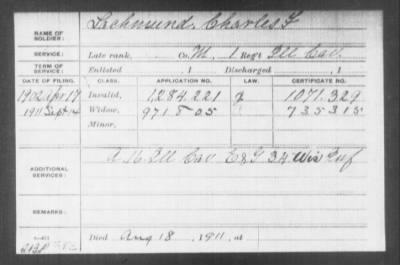 NAME OF SOLDIER: Lachmund, Charles F
SERVICE: Late rank, Co. M, 1 Reg't Ill Cav.
TERM OF SERVICE: Enlisted , 1 Discharged , 1
DATE OF FILING. CLASS. APPLICATION NO. LAW. CERTIFICATE NO.
1902 Apr 17 Invalid, 1,284.221 g 1,071.329
1911 Sept Widow, 971805 735315
Minor,
ADDITIONAL SERVICES: A 16 Ill Cav E & G 34 Wis Inf
REMARKS:
Died Aug 18, 1911, at